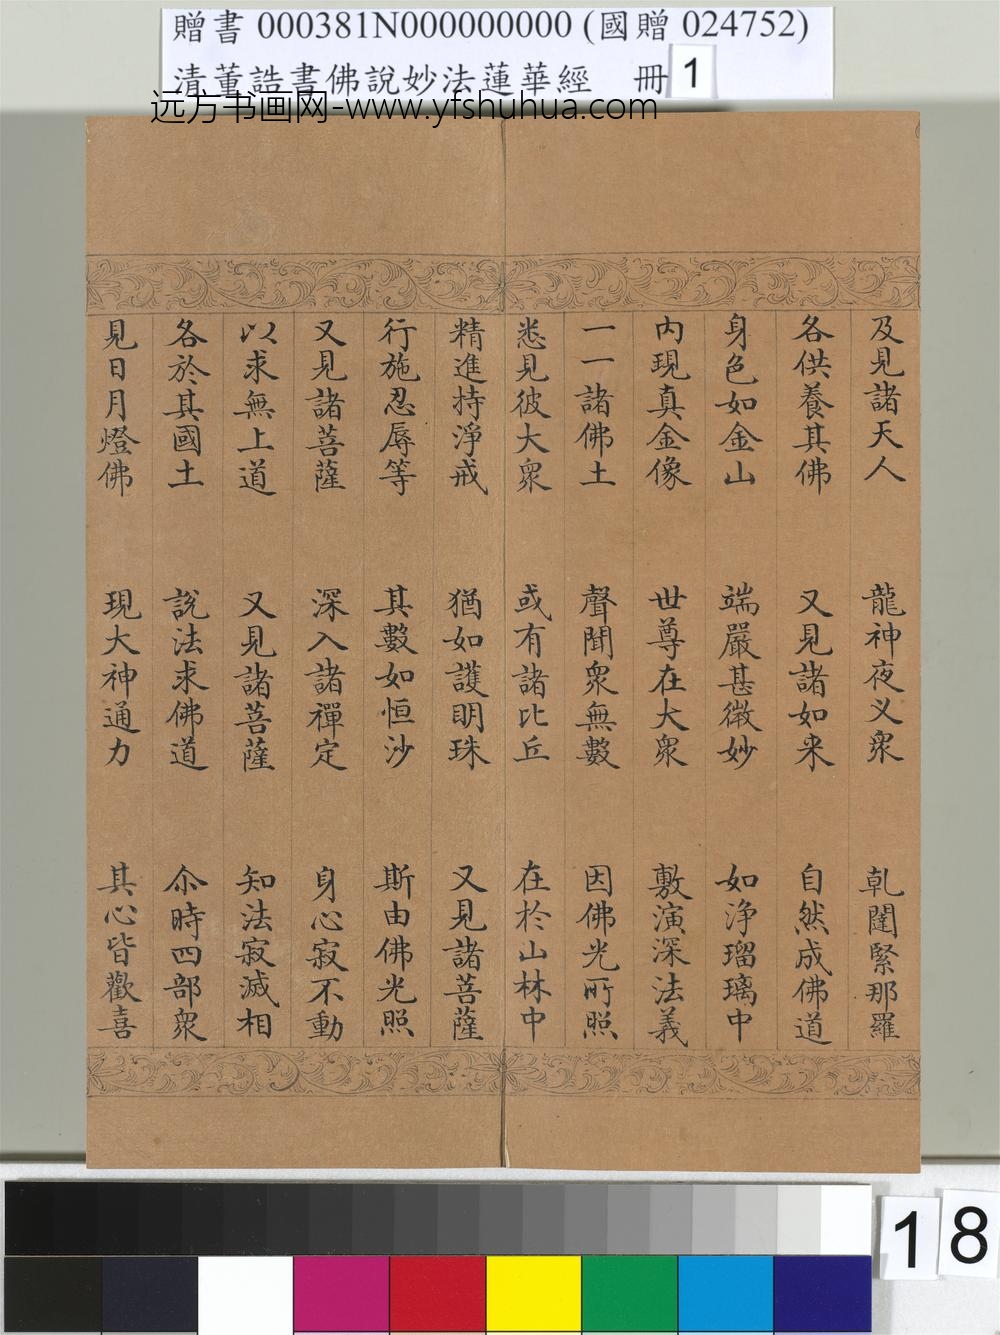 贈書 000381N000000000 (國贈 024752)
清董誥書佛說妙法蓮華經 冊 1
远方书画网-www.yfshuhua.com
及見諸天人 龍神夜叉衆 乹闥緊那羅
各供養其佛 又見諸如来 自然成佛道
身色如金山 端嚴甚微妙 如浄瑠璃中
内現真金像 世尊在大衆 敷演深法義
一一諸佛土 聲聞衆無數 因佛光所照
悉見彼大衆 或有諸比丘 在於山林中
精進持淨戒 猶如護明珠 又見諸菩薩
行施忍辱等 其數如恒沙 斯由佛光照
又見諸菩薩 深入諸禪定 身心寂不動
以求無上道 又見諸菩薩 知法寂滅相
各於其國土 說法求佛道 尒時四部衆
見日月燈佛 現大神通力 其心皆歡喜
18